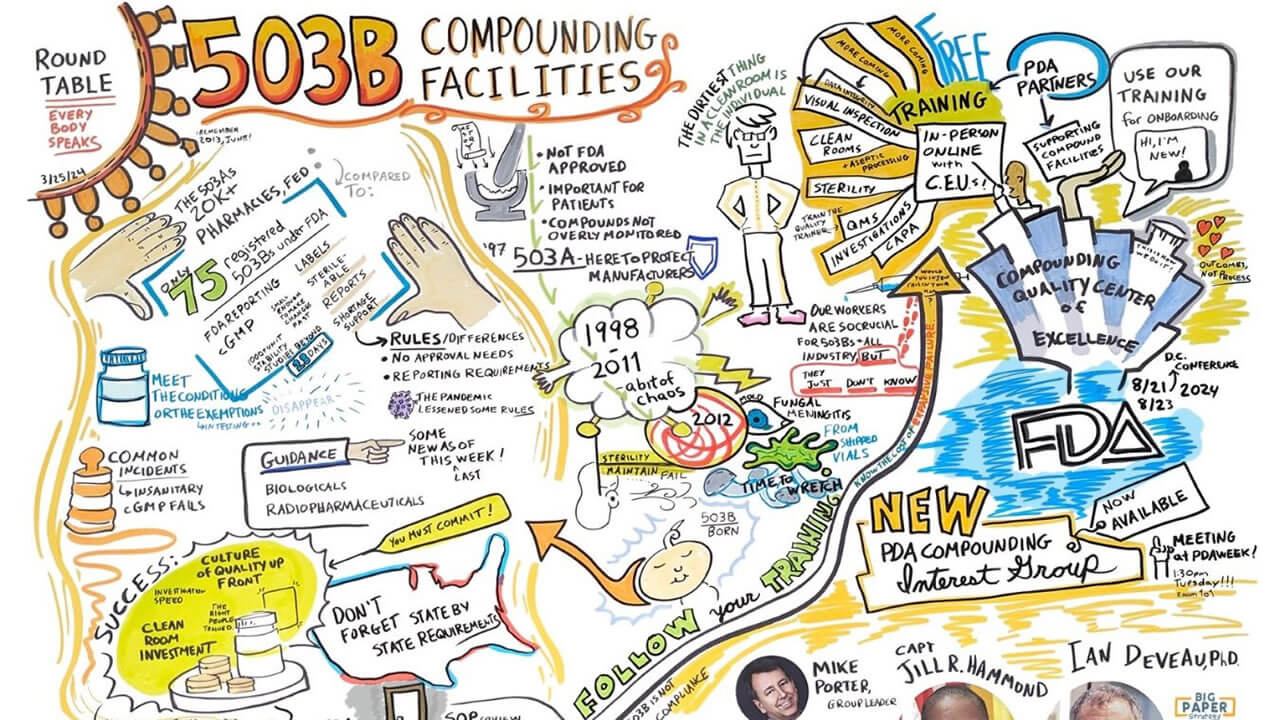 ROUND
TABLE
EVERY
BODY
SPEAKS
3/25/24
503B
COMPOUNDING
FACILITIES
REMEMBER
2013, JUNE!
THE 503As
20K+
PHARMACIES, FED
COMPARED
TO:
ONLY
75
registered
503Bs under FDA
FDA REPORTING
cGMP
LABELS
STERILE-
ABLE
REPORTS
SHORTAGE
SUPPORT
STABILITY
STUDIES BEYOND
DAYS
RULES/DIFFERENCES
• NO APPROVAL NEEDS
• REPORTING REQUIREMENTS
THE PANDEMIC
LESSENED SOME RULES
MEET
THE CONDITIONS
OR THE EXEMPTIONS
IN TESTING
DISAPPEAR
GUIDANCE
BIOLOGICALS
RADIOPHARMACEUTICALS
SOME
NEW AS OF
THIS WEEK!
LAST
COMMON
INCIDENTS
INSANITARY
cGMP FAILS
SUCCESS:
CULTURE
OF QUALITY UP
FRONT
INVESTIGATION
SPEED
THE
RIGHT
PEOPLE
TRAINED
CLEAN
ROOM
INVESTMENT
YOU MUST COMMIT!
DON'T
FORGET STATE BY
STATE REQUIREMENTS
• NOT FDA
APPROVED
• IMPORTANT FOR
PATIENTS
• COMPOUNDS NOT
OVERLY MONITORED
'97 503A - HERE TO PROTECT
MANUFACTURERS
1998
-
2011
a bit of
chaos
2012
MOLD
FUNGAL
MENINGITIS
FROM
SHIPPED
VIALS
STERILITY
MAINTAIN FAIL
TIME TO WRETCH
503B
BORN
THE DIRTIEST THING
IN A CLEANROOM IS
THE INDIVIDUAL
MORE COMING
MORE COMING
DATA INTEGRITY
VISUAL INSPECTION
CLEAN
ROOMS
+ ASEPTIC
PROCESSING
STERILITY
QMS
INVESTIGATIONS
CAPA
TRAIN THE
QUALITY
TRAINER
FREE
TRAINING
IN-PERSON
ONLINE
with
C.E.U.s!
PDA
PARTNERS
SUPPORTING
COMPOUND
FACILITIES
USE OUR
TRAINING
for ONBOARDING
HI, I'M
NEW!
COMPOUNDING
QUALITY CENTER
of
EXCELLENCE
OUTCOMES,
NOT PROCESS
D.C.
CONFERENCE
8/21
8/23
2024
OUR WORKERS
ARE SO CRUCIAL
FOR 503Bs + ALL
INDUSTRY, BUT
THEY
JUST DON'T KNOW
FOLLOW your TRAINING
KNOW THE COST OF EXPENSIVE FAILURE.
FDA
NEW
PDA COMPOUNDING
Interest Group
NOW
AVAILABLE
MEETING
at PDA WEEK!
1:30pm
Tuesday!!!
503B IS NOT
COMPLIANCE
MIKE
PORTER,
GROUP LEADER
CAPT
JILL R. HAMMOND
IAN DEVEAU, PhD.
BIG
PAPER
STRATEGY